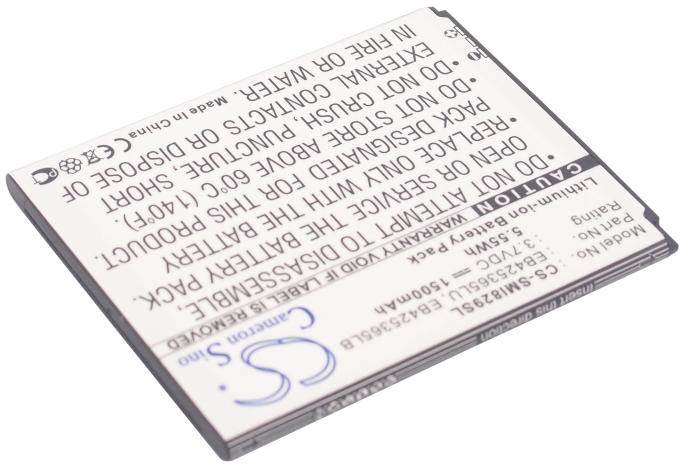 CS
Cameron Sino
Model No. :CS-SMI829SL
Part No. :EB425365LU, EB425365LB
Rating :3.7VDC 1500mAh
5.55Wh
Lithium-ion Battery Pack
CAUTION
WARRANTY VOID IF THIS LABEL IS REMOVED
•DO NOT ATTEMPT TO DISASSEMBLE,
OPEN OR SERVICE THE BATTERY PACK.
•REPLACE ONLY WITH THE BATTERY
PACK DESIGNATED FOR THIS PRODUCT.
•DO NOT STORE ABOVE 60°C (140°F).
•DO NOT CRUSH, PUNCTURE, SHORT
EXTERNAL CONTACTS OR DISPOSE OF
IN FIRE OR WATER.
CE
Made in China